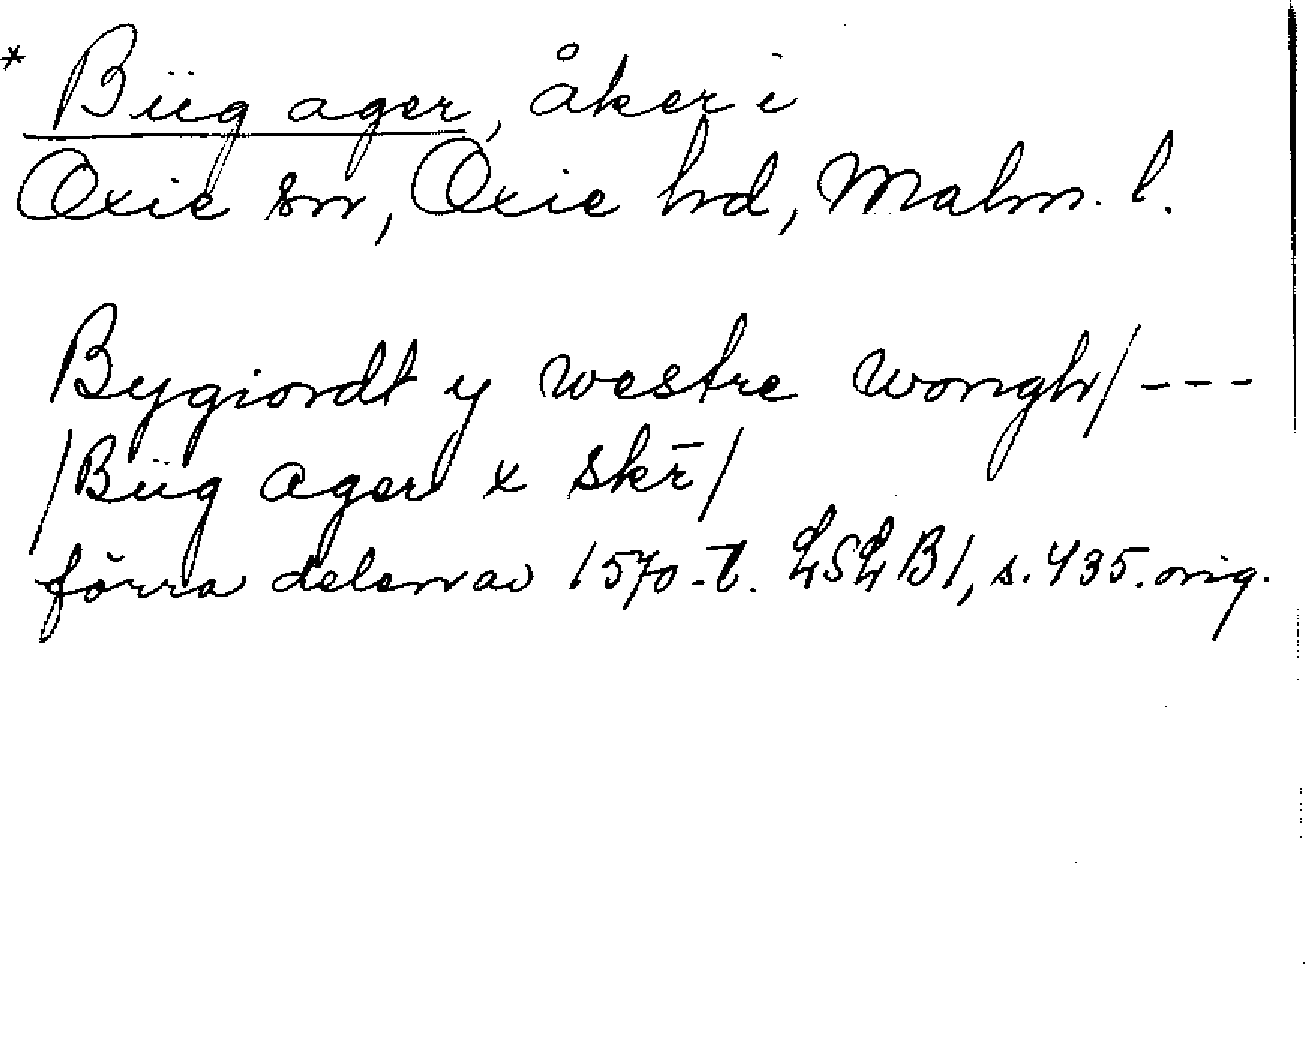 * Büg ager, åker i
Oxie sn, Oxie hd, Malm. l.
Bygiordt y westre wongh/---
/Büg ager x skr̄/
förra delen av 1570-t. LSLB1, s. 435. orig.